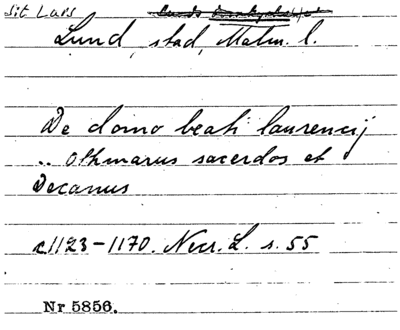 Sit Lars
Lund, stad, Malm. l.
De domo beati laurencij
.. Othmarus sacerdos et
Decanus
c1123-1170. Necr. L. s. 55
Nr 5856.